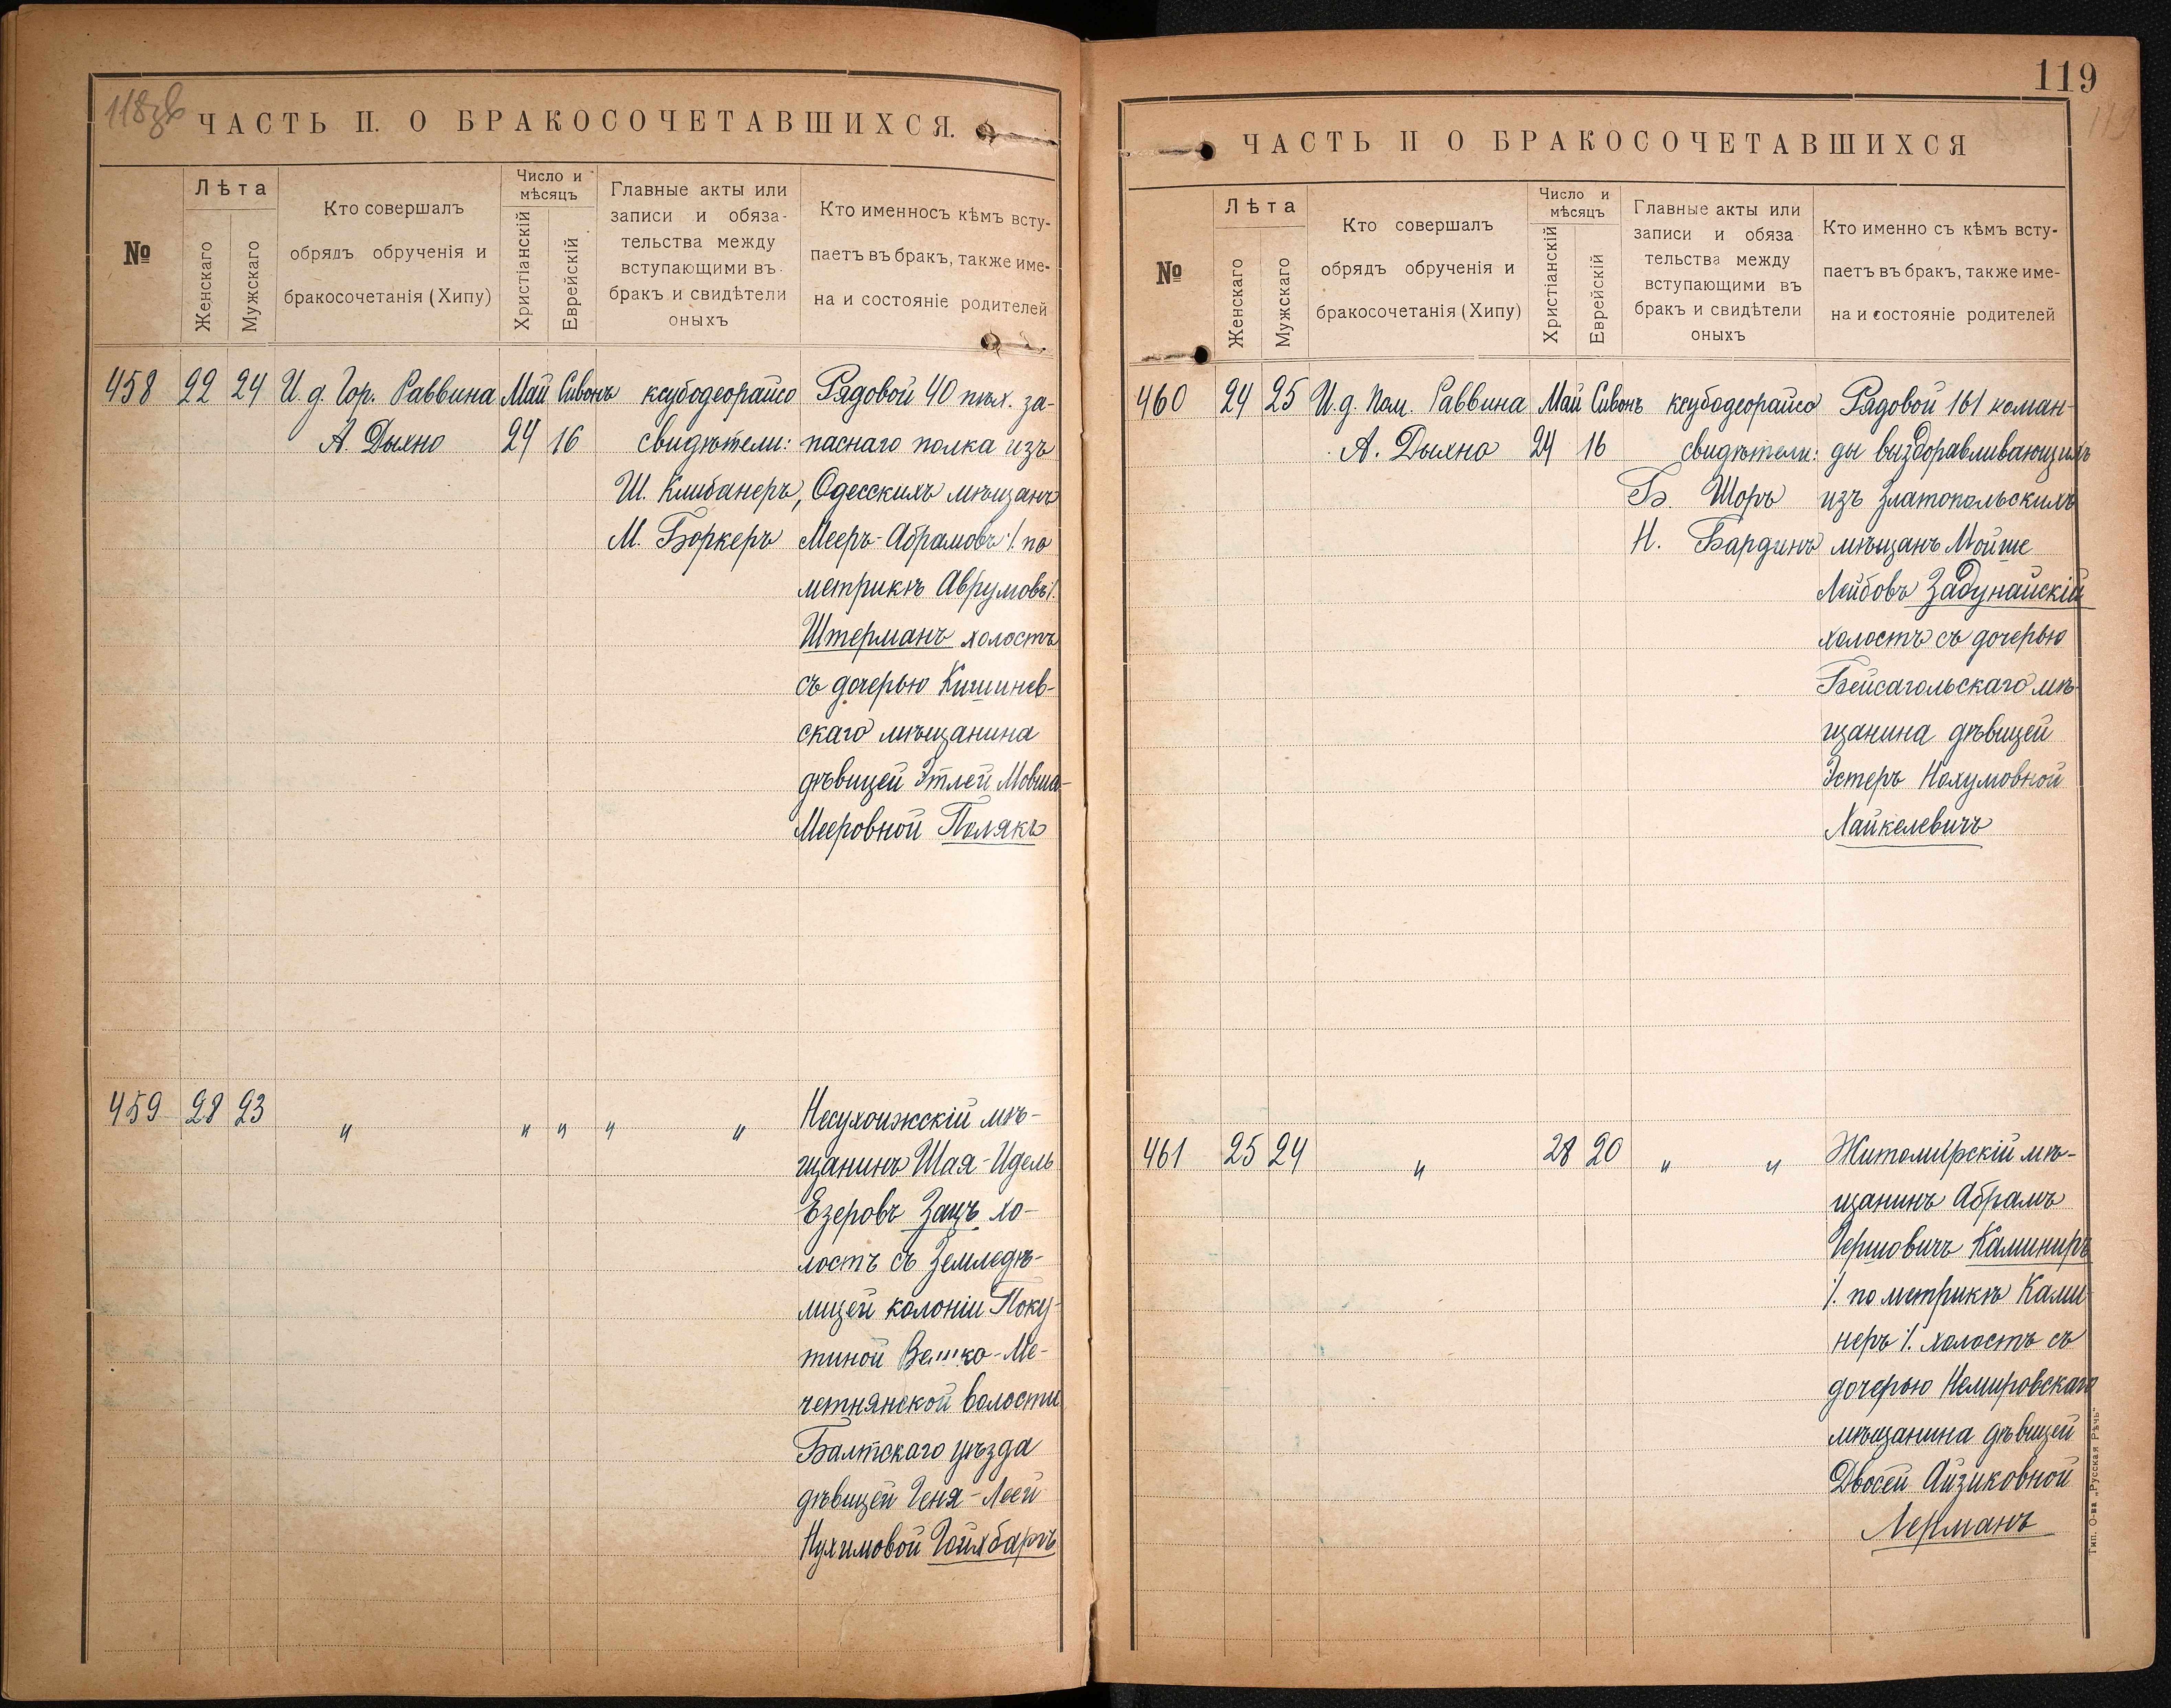 118 зв
ЧАСТЬ II. О БРАКОСОЧЕТАВШИХСЯ.
№
Лѣта
Женскаго
Мужскаго
Кто совершалъ
обрядъ обрученія и
бракосочетанія (Хипу)
Число и
мѣсяцъ
Христіанскій
Еврейскій
Главные акты или
записи и обяза-
тельства между
вступающими въ
бракъ и свидѣтели
оныхъ
Кто именносъ кѣмъ всту-
паетъ въ бракъ, также име-
на и состояніе родителей
458 22 24 И. д. Гор. Раввина Май Сивонъ ксубодеорайсо Рядовой 40 пѣх. за-
А. Дыхно 24 16 свидѣтели: паснаго полка изъ
Ш. Клибанеръ, Одесскихъ мѣщанъ
М. Боркеръ Мееръ-Абрамовъ /. по
метрикѣ Аврумовъ /.
Штерманъ холостъ
съ дочерью Кишинев-
скаго мѣщанина
дѣвицей Этлей Мовша-
Мееровной Полякъ
459 28 23 " " " " " Несухоижскій мѣ-
щанинъ Шая-Идель
Езеровъ Зацъ хо-
лостъ съ Земледѣ-
лицей колоніи Поку-
тиной -Ме-
четнянской волости
Балтскаго уѣзда
дѣвицей Геня-Леей
Нухимовой Гойхбаргъ
119
119
ЧАСТЬ II О БРАКОСОЧЕТАВШИХСЯ
№
Лѣта
Женскаго
Мужскаго
Кто совершалъ
обрядъ обрученія и
бракосочетанія (Хипу)
Число и
мѣсяцъ
Христіанскій
Еврейскій
Главные акты или
записи и обяза
тельства между
вступающими въ
бракъ и свидѣтели
оныхъ
Кто именно съ кѣмъ всту-
паетъ въ бракъ, также име-
на и состояніе родителей
460 24 25 И. д. Пом. Раввина Май Сивонъ ксубодеорайсо Рядовой 161 коман-
А. Дыхно 24 16 свидѣтели: ды выздоравливающихъ
Б. Шоръ изъ Златопольскихъ
Н. Бардинъ мѣщанъ Мойше
Лейбовъ Задунайскій
холостъ съ дочерью
Бейсагольскаго мѣ-
щанина дѣвицей
Эстеръ Нохумовной
Хайкелевичъ
461 25 24 " 28 20 " " Житомирскій мѣ-
щанинъ Абрамъ
Гершовичъ Каминиръ
/. по метрикѣ Ками-
неръ /. холостъ съ
дочерью Немировскаго
мѣщанина дѣвицей
Двосей Айзиковной
Лерманъ
Тип. О-ва „Русская Рѣчь“